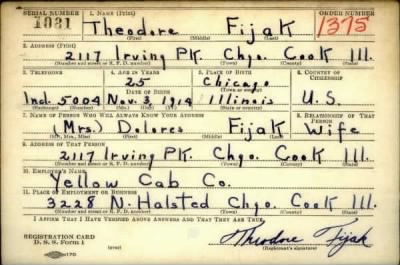 SERIAL NUMBER 1. NAME (Print) ORDER NUMBER
1031 Theodore Fijak 1375
(First) (Middle) (Last)
2. ADDRESS (Print)
2117 Irving PK. Chgo. Cook Ill.
(Number and street or R. F. D. number) (Town) (County) (State)
3. TELEPHONE 4. AGE IN YEARS 5. PLACE OF BIRTH 6. COUNTRY OF CITIZENSHIP
25 Chicago
DATE OF BIRTH (Town or county)
Ind. 5004 Nov. 3, 1914 Illinois U.S.
(Exchange) (Number) (Mo.) (Day) (Yr.) (State or country)
7. NAME OF PERSON WHO WILL ALWAYS KNOW YOUR ADDRESS 8. RELATIONSHIP OF THAT PERSON
(Mrs.) Dolores Fijak Wife
(Mr., Mrs., Miss) (First) (Middle) (Last)
9. ADDRESS OF THAT PERSON
2117 Irving PK. Chgo. Cook Ill.
(Number and street or R. F. D. number) (Town) (County) (State)
10. EMPLOYER'S NAME
Yellow Cab Co.
11. PLACE OF EMPLOYMENT OR BUSINESS
3228 N. Halsted Chgo. Cook Ill.
(Number and street or R. F. D. number) (Town) (County) (State)
I AFFIRM THAT I HAVE VERIFIED ABOVE ANSWERS AND THAT THEY ARE TRUE.
REGISTRATION CARD
D. S. S. Form 1 (over) Theodore Fijak
(Registrant's signature)